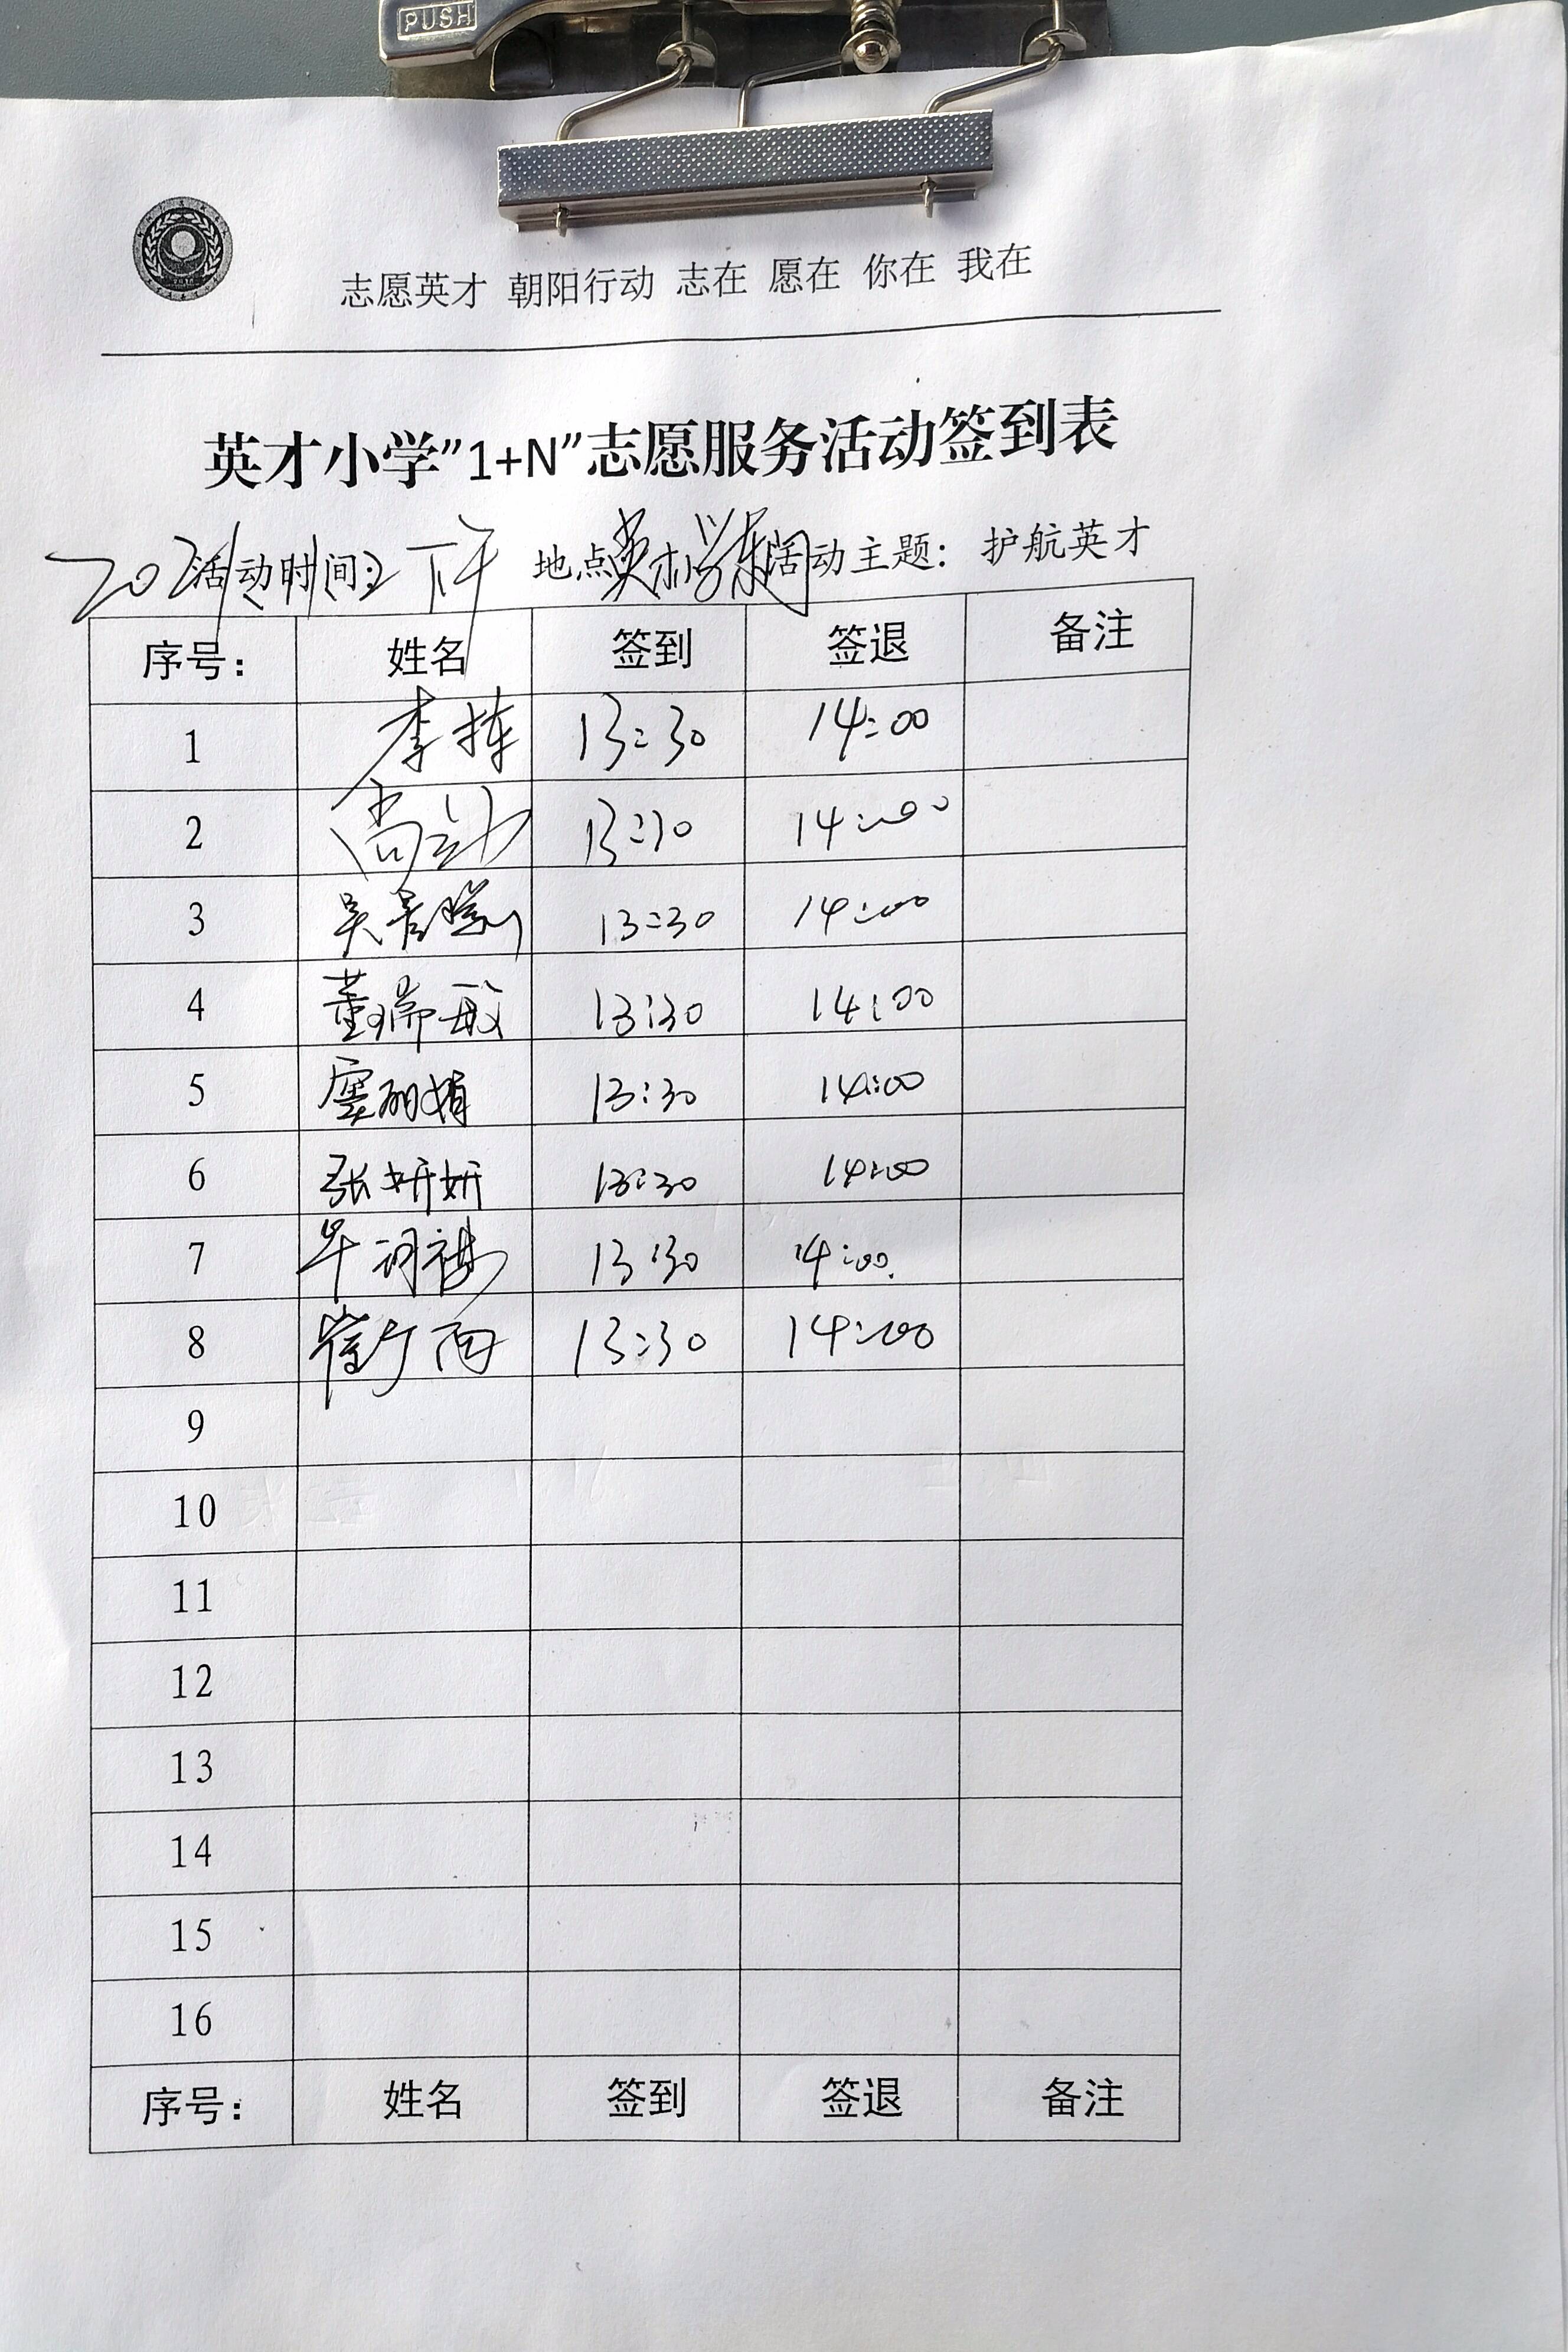 PUSH
志愿英才 朝阳行动 志在 愿在 你在 我在
英才小学”1+N”志愿服务活动签到表
活动时间: 下午 地点 活动主题: 护航英才
序号: 姓名 签到 签退 备注
1 李栋 13:30 14:00
2 尚 13:30 14:00
3 吴 13:30 14:00
4 董瑞敏 13:30 14:00
5 窦丽娟 13:30 14:00
6 张妍妍 13:30 14:00
7 13:30 14:00
8 崔 雨 13:30 14:00
9
10
11
12
13
14
15
16
序号: 姓名 签到 签退 备注